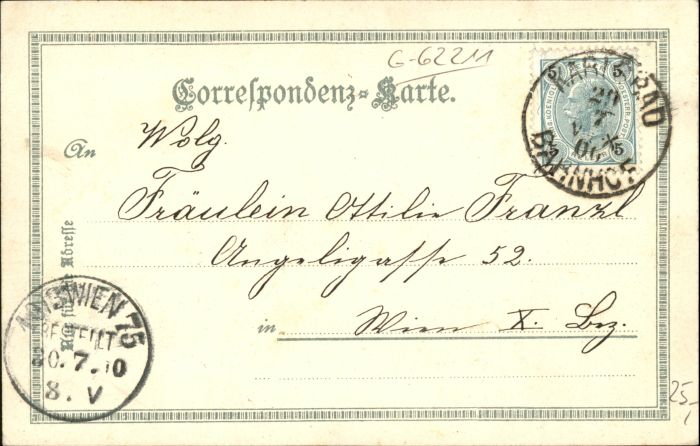 G-62211
Correspondenz-Karte.
KARLSBAD
29
7
00
BAHNHOF
5 5
5 5
Wolg.
An
Fräulein Ottilie Franzl
Angeligasse 52.
in Wien X. Bez.
Nur für die Adresse
WIEN 75
BESTELLT
30.7.00
8. V
25,-